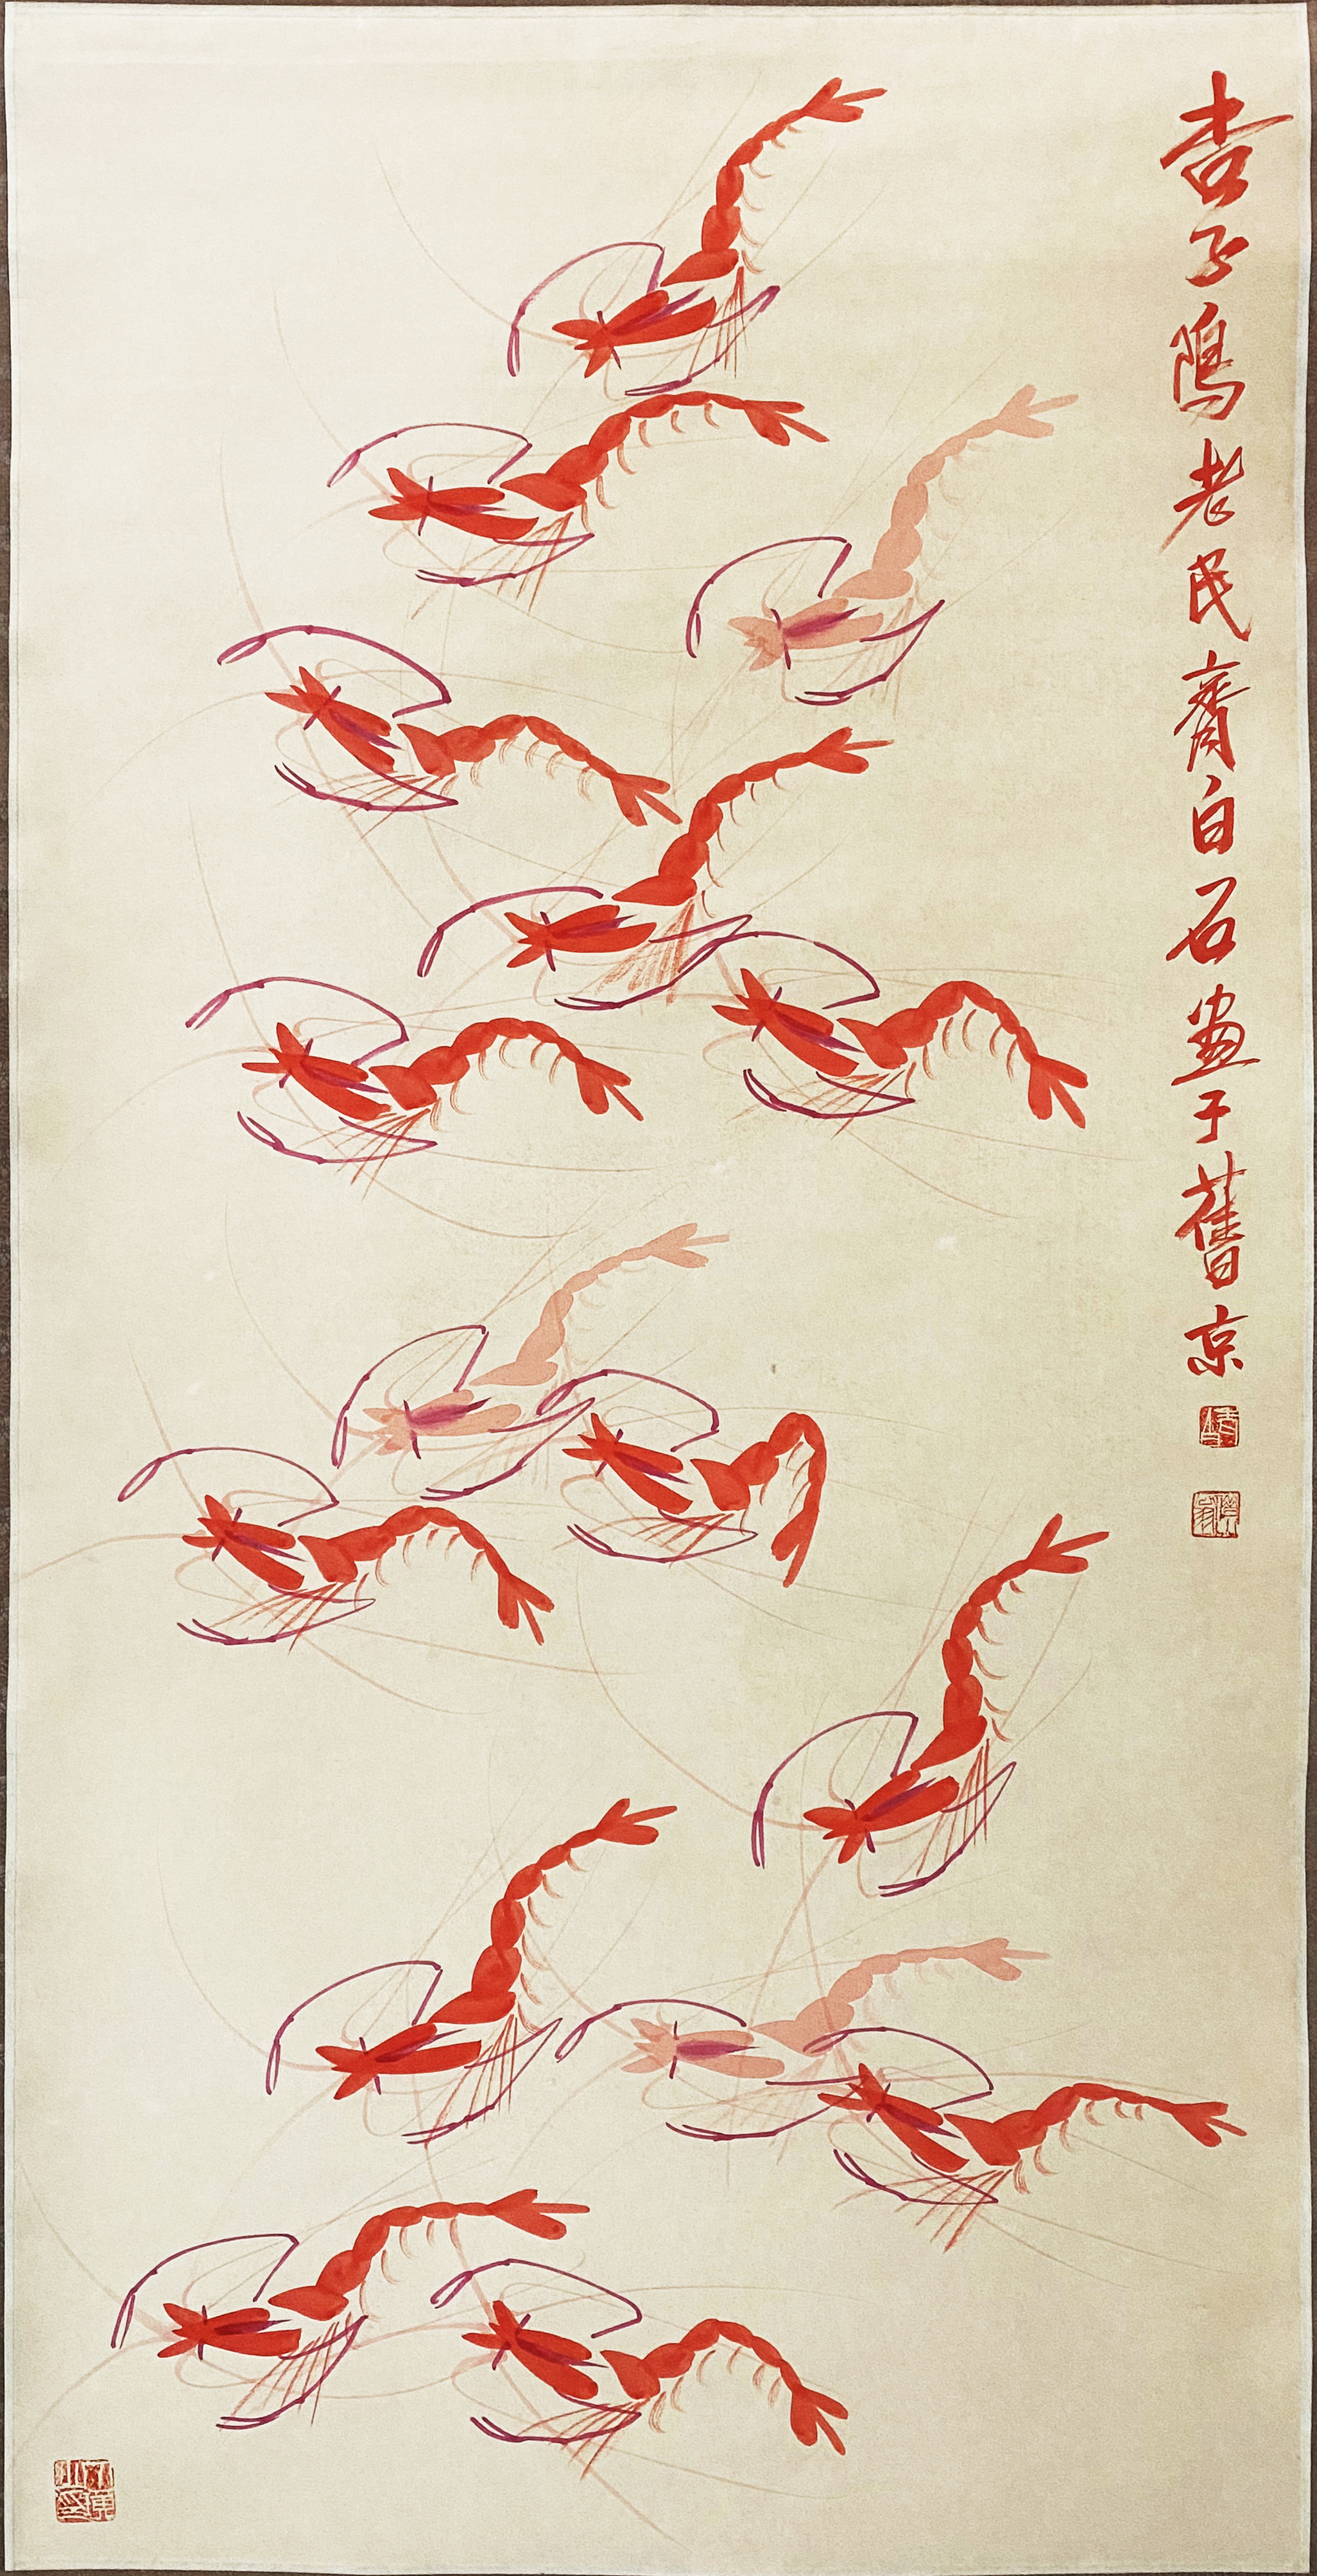 杏子隝老民齊白石畫于舊京